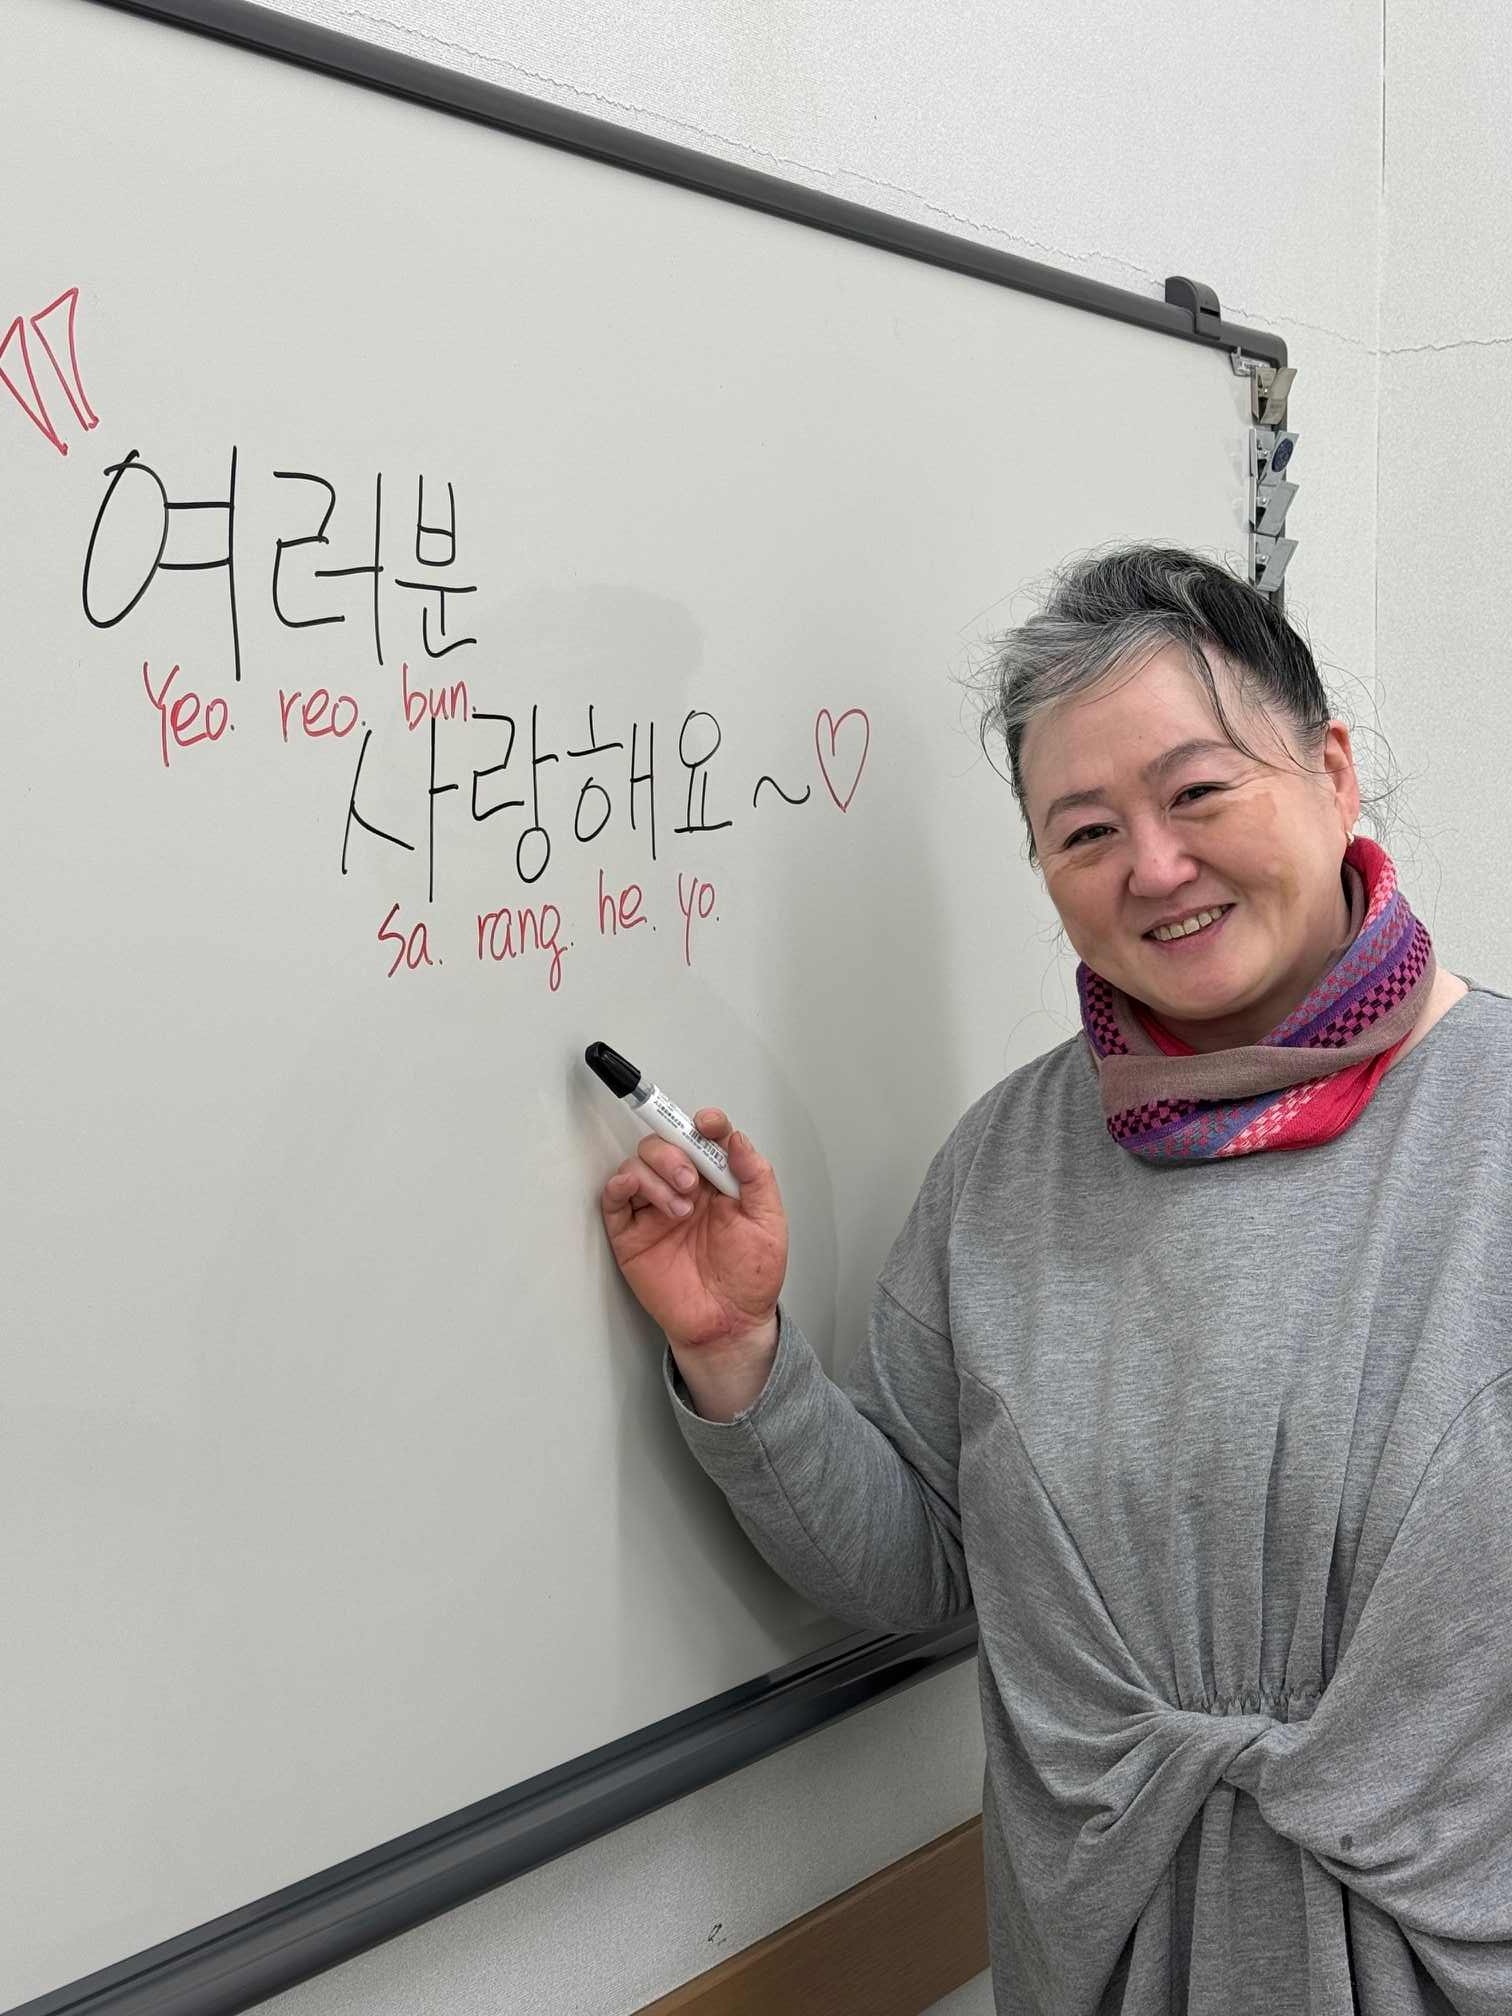 여러분
Yeo. reo. bun.
사랑해요~♡
Sa. rang. he. yo.